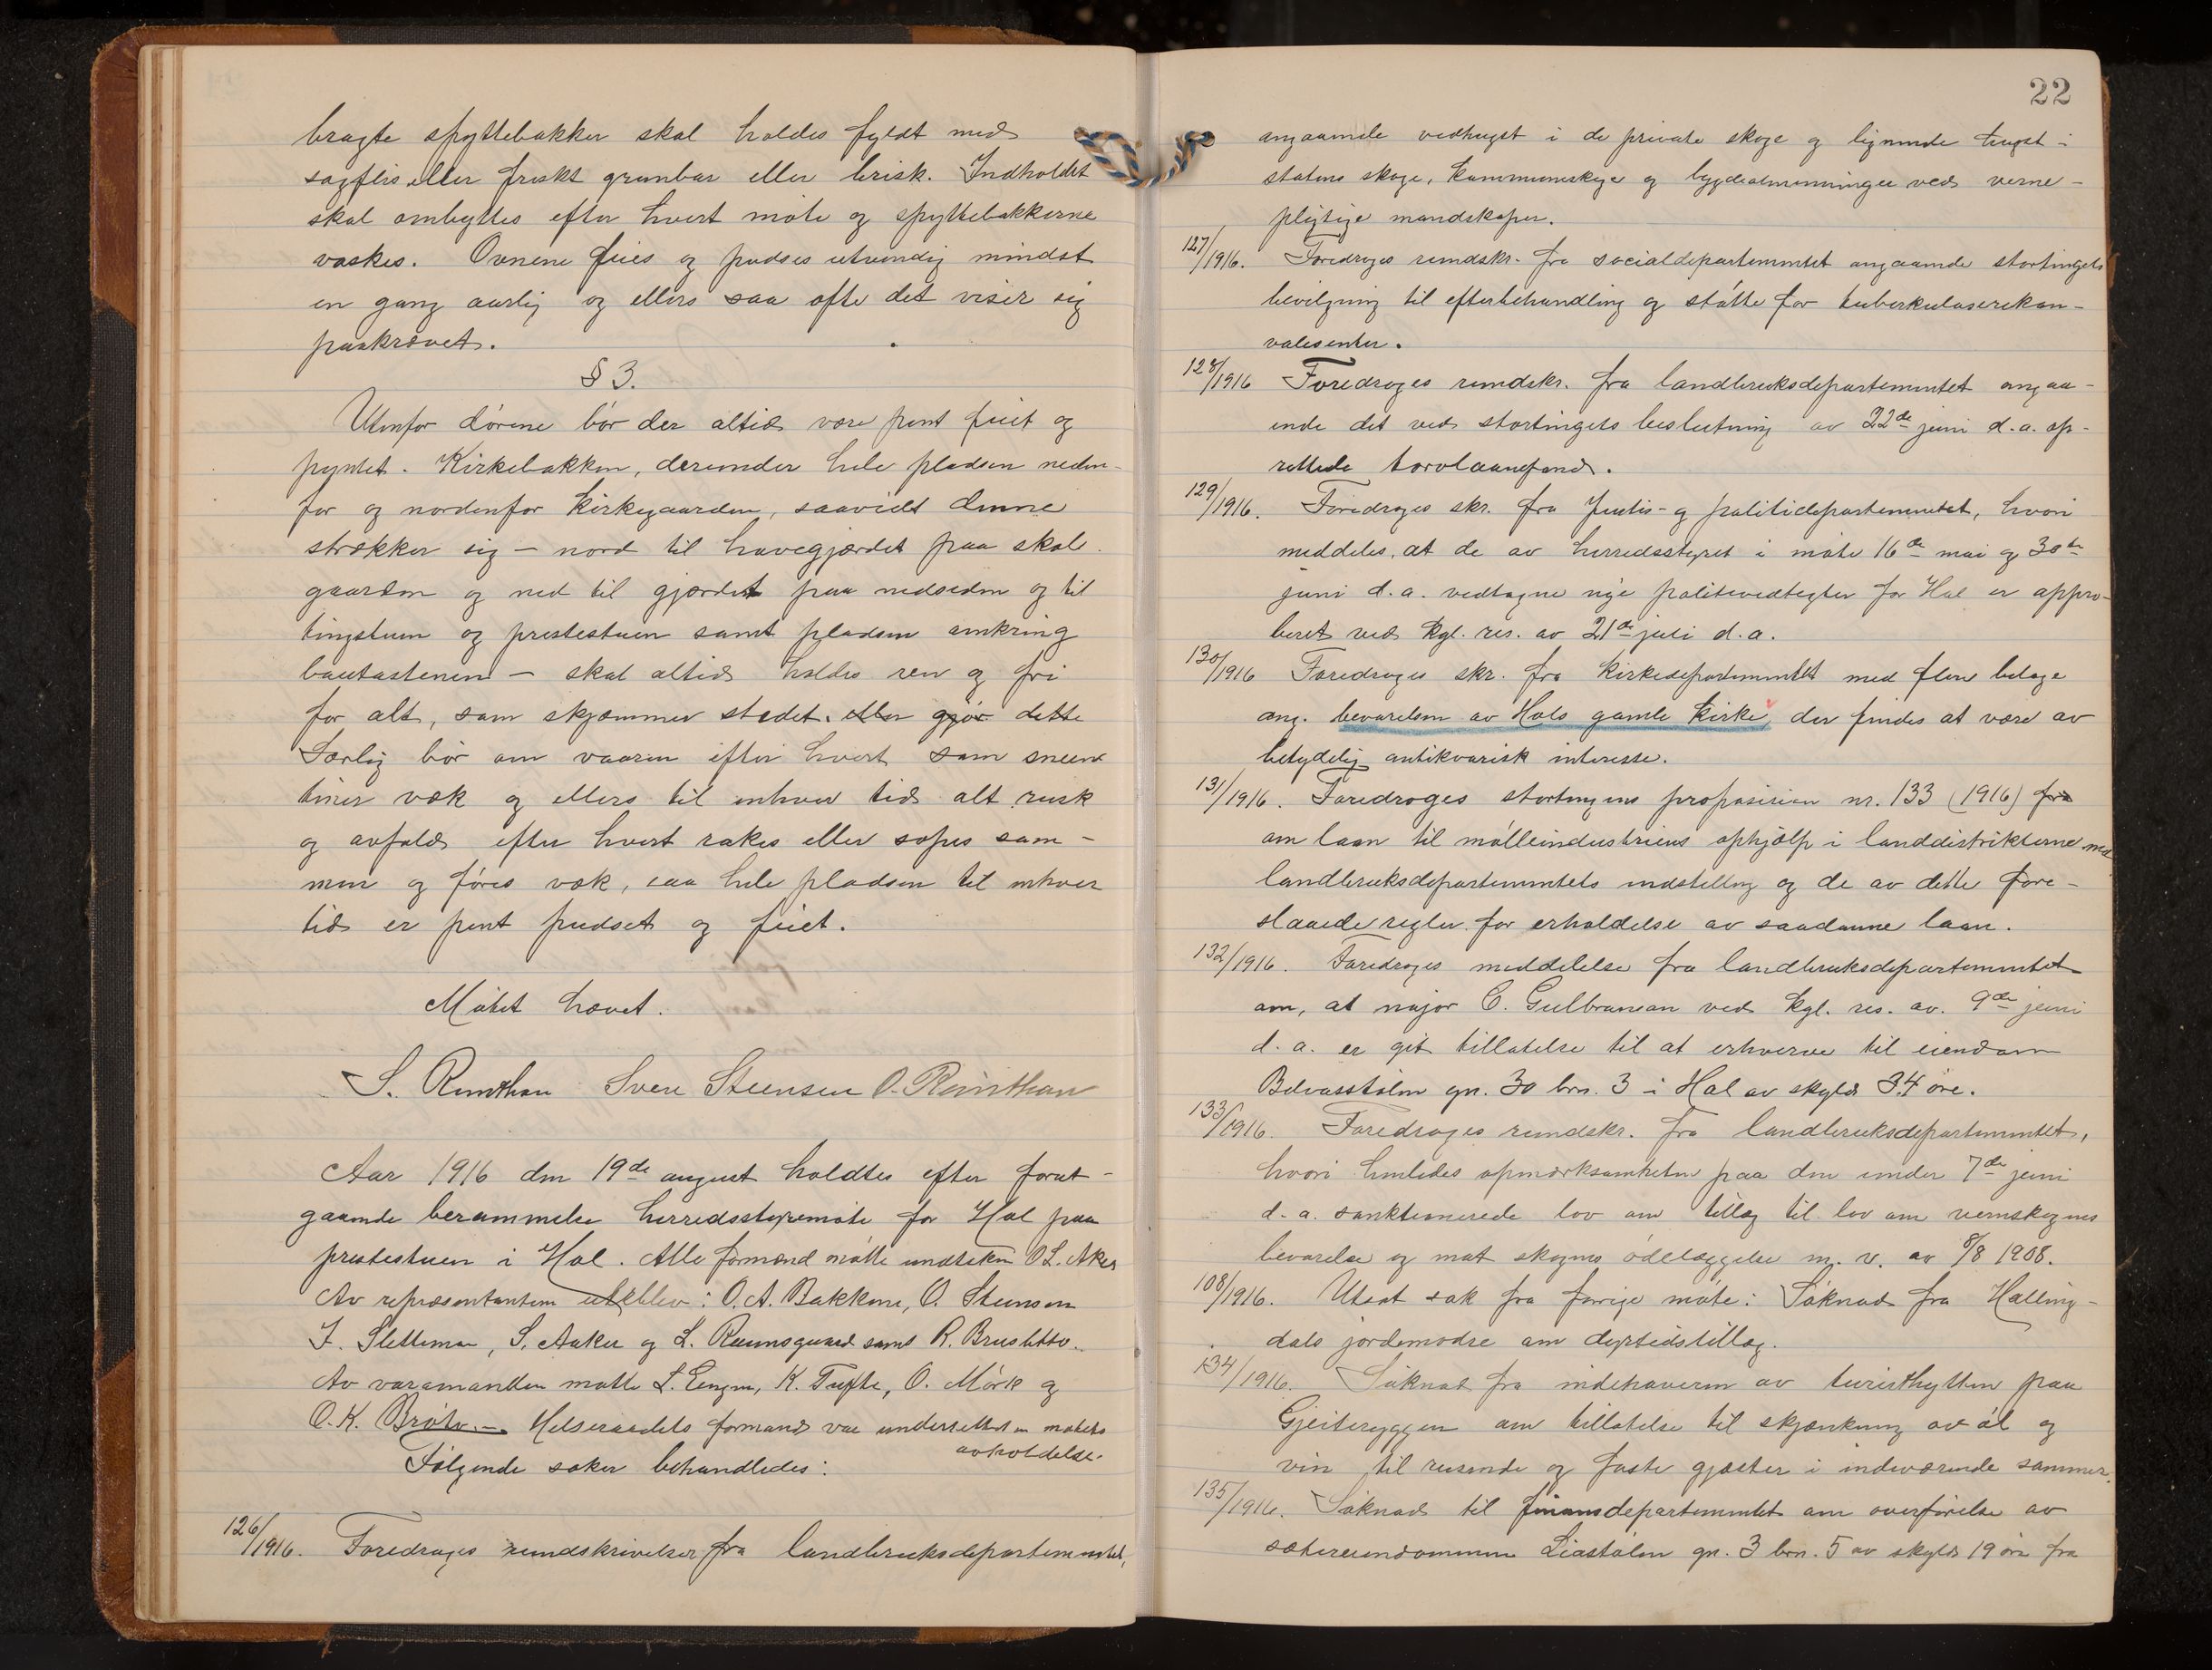 bragte spyttebakker skal holdes fyldt med
sagflis eller friskt grunbar eller brisk. Indholdet
skal ombyttes efter hvert møte og spyttebakkerne
vaskes. Ovnene feies og pudses utvendig mindst
en gang aarlig og ellers saa ofte det viser sig
paakrævet.
§ 3.
Utenfor dørene bør der altid være pent feiet og
pyntet. Kirkebakken, derunder hele pladsen neden-
for og nordenfor kirkegaarden, saavidt denne
strækker sig – nord til havegjærdet paa skole
gaarden og ned til gjærdet paa nedsiden og til
tingstuen og prestestuen samt pladsen omkring
bautastenen – skal altid holdes ren og fri
for alt, som skjæmmer stedet. eller gjør dette
Særlig bør om vaaren efter hvert som sneen
tiner væk og ellers til enhver tid alt rusk
og avfald efter hvert rakes eller sopes sam-
men og føres væk, saa hele pladsen til enhver
tid er pent pudset og feiet.
Møtet hævet.
S. Sven Steensen O.
Aar 1916 den 19de august holdtes efter forut-
gaaende berammelse herredsstyremøte for Hol paa
prestestuen i Hol. Alle formænd møtte undtaken O L. Aker
Av repræsentanten uteblev: O. A. Bakkene, O. Steensen
S. Aaker og L. samt R. Brusletto.
Av varamænden møtte L. K. Tufte, O. Mørk og
O. K. Brøto. – Helseraadets formand var underrettet om møtets
avholdelse.
Følgende saker behandledes:
126/1916. Foredroges rundskrivelser fra landbruksdepartementet,
22
angaaende vedhugst i de private skoge og lignende hugst i
statens skoge, kommuneskoge og bygdealmenninger ved verne-
pligtige mandskaper.
127/1916. Foredroges rundskr. fra socialdepartementet angaaende stortingets
bevilgning til efterbehandling og støtte for tuberkuloserekon-
valesenter.
128/1916 Foredroges rundskr. fra landbruksdepartementet angaa-
ende det ved stortingets beslutning av 22de juni d.a. op-
rettede torvlaanefond.
129/1916. Foredroges skr. fra Justis- og politidepartementet, hvori
meddeles, at de av herredsstyret i møte 16de mai og 30te
juni d.a. vedtagne nye politivedtegter for Hol er appro-
beret ved kgl. res. av 21de juli d.a.
130/1916 Foredroges skr. fra kirkedepartementet med flere belage
ang. bevarelsen av Hols gamle kirke, der findes at være av
betydelig antikvarisk interesse.
131/1916. Foredroges stortingens proposision nr. 133 (1916) fra
om laan til mølleindustriens ophjælp i landdistrikterne med
landbruksdepartementets indstilling og de av dette fore-
slaaede regler for erholdelse av saadanne laan.
132/1916. Foredroges meddelelse fra landbruksdepartementet
om, at major C. Gulbranson ved kgl. res. av. 9de juni
d.a. er git tillatelse til at erhverve til eiendom
gn. 30 brn. 3 i Hol av skyld 34 øre.
133/1916. Foredroges rundskr. fra landbruksdepartementet,
hvori henledes opmærksomheten paa den under 7de juni
d.a. sanktionerede lov om tillæg til lov om vernskogens
bevarelse og mot skogens ødelæggelse m. v. av 8/8 1908.
108/1916. Utsat sak fra forrige møte: Søknad fra Halling-
dals jordemødre om dyrtidstillæg.
134/1916. Søknad fra indehaveren av turisthytten paa
Gjeiteryggen om tillatelse til skjænkning av øl og
vin til reisende og faste gjæster i indeværende sommer.
135/1916. Søknad til finansdepartementet om overførelse av
sætereiendommen Liastølen gn. 3 brn. 5 av skyld 19 øre fra